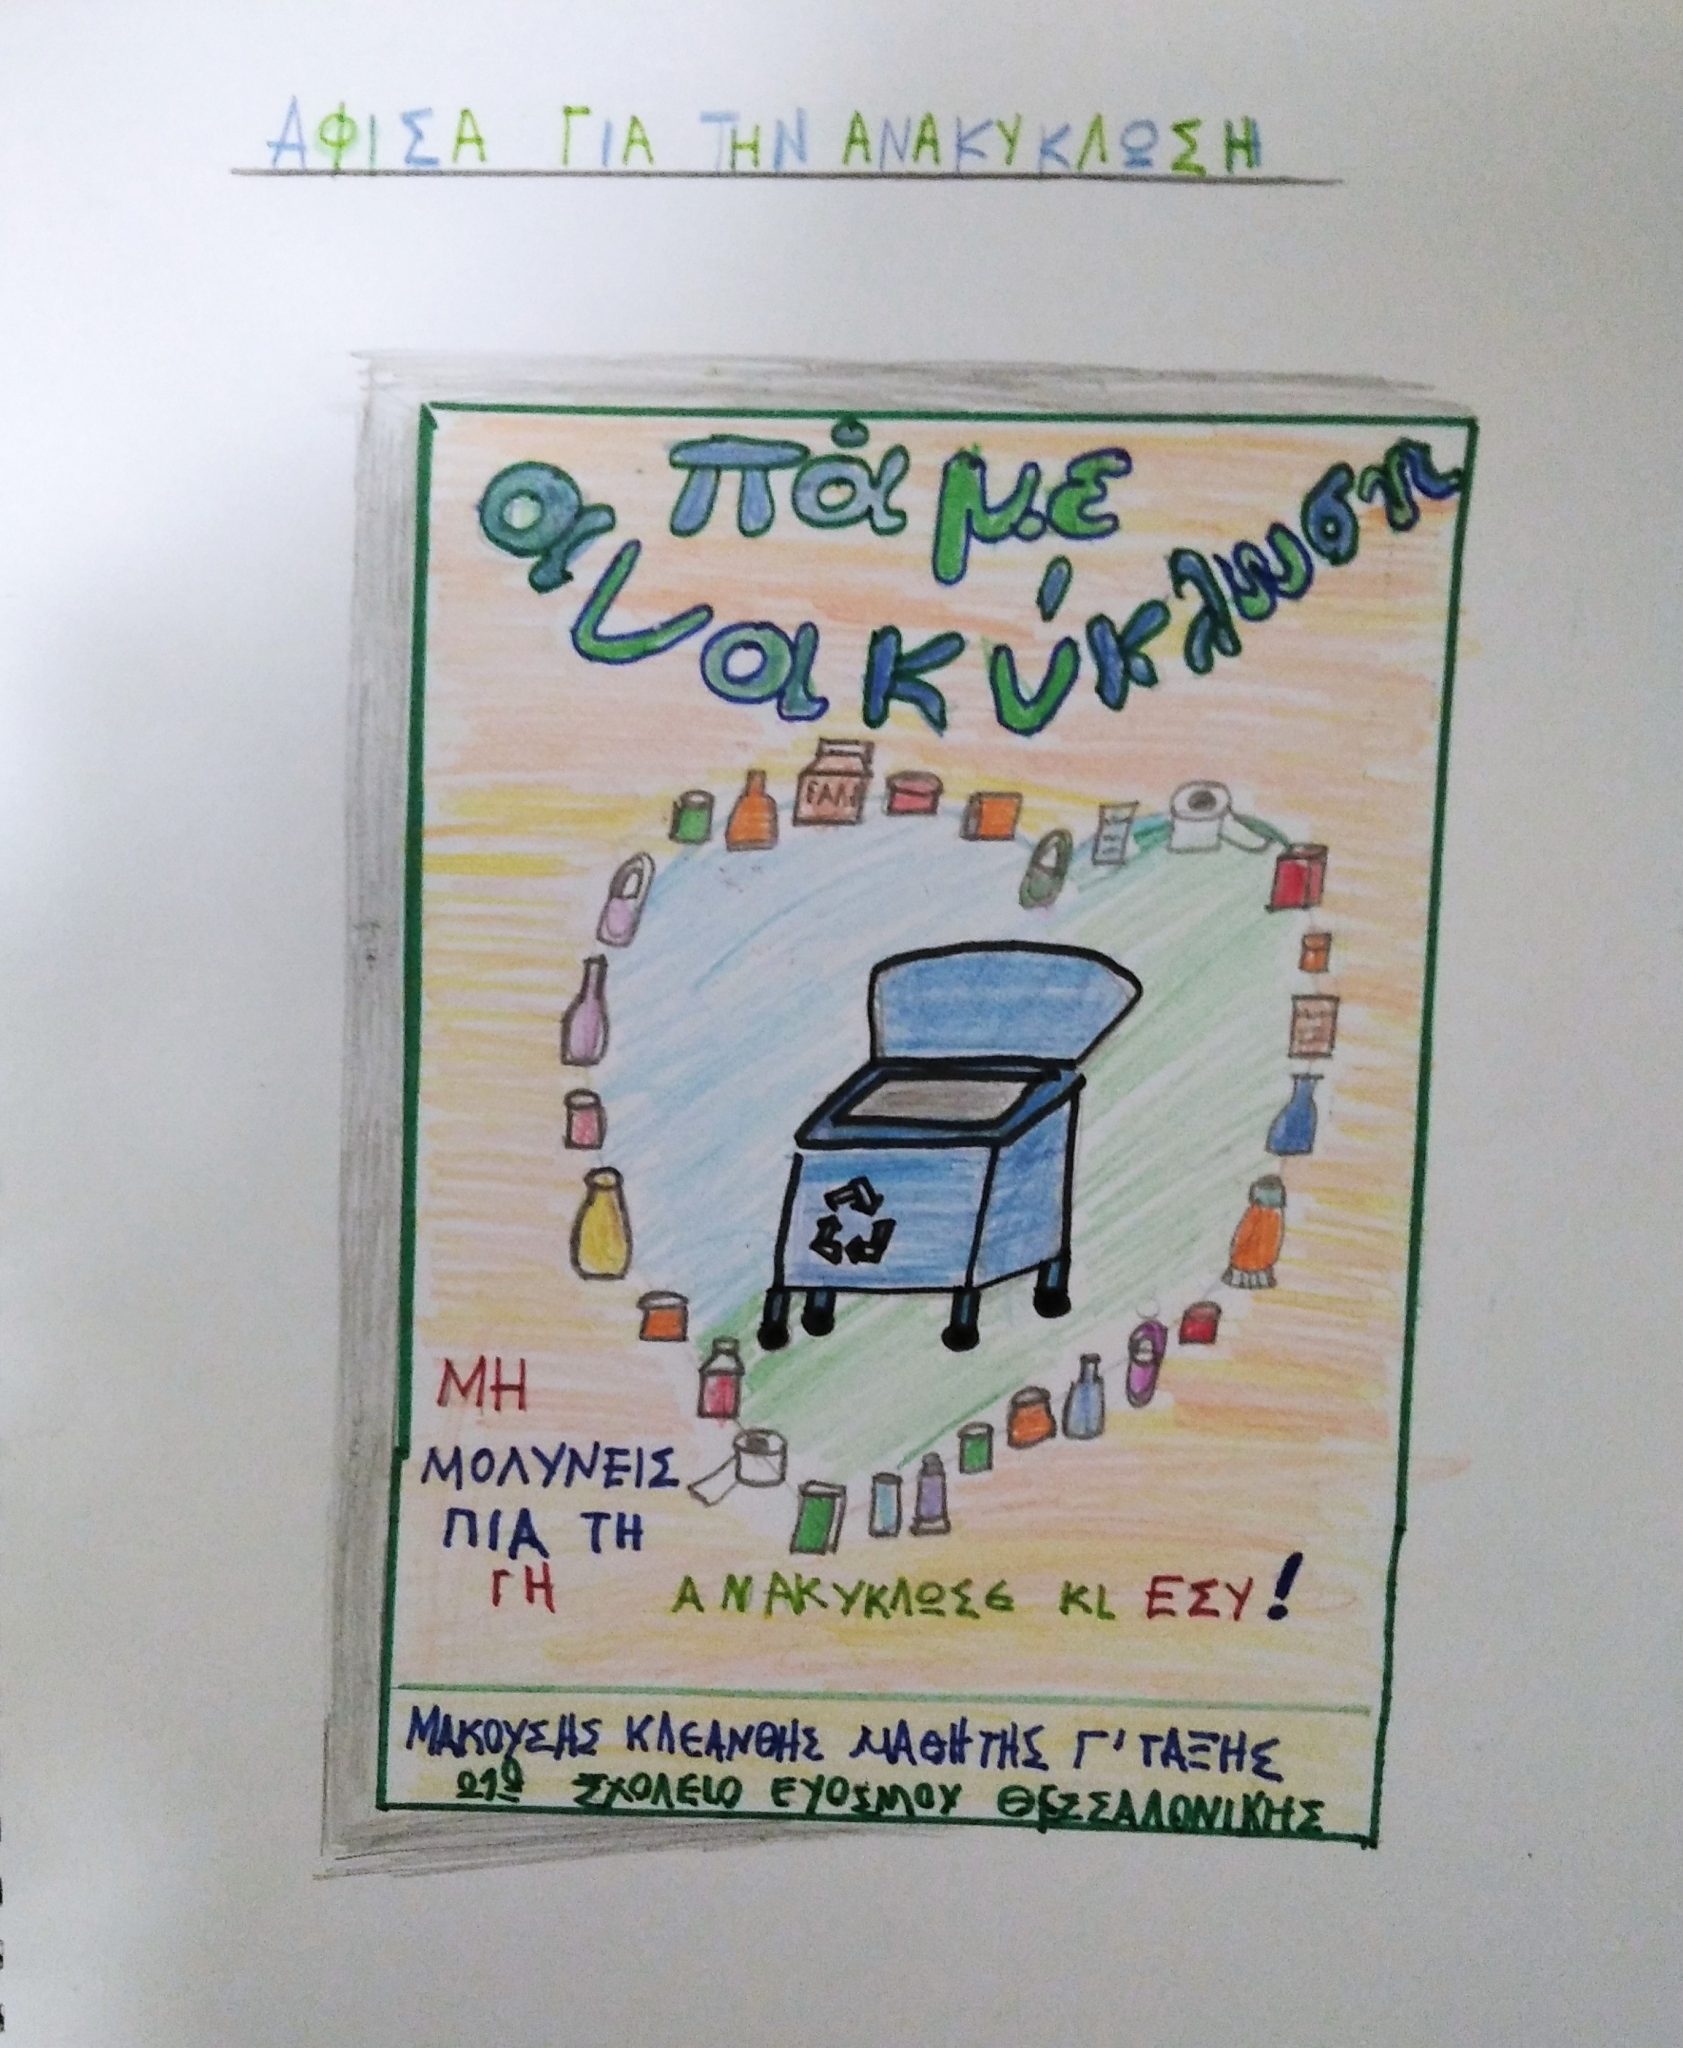 ΑΦΙΣΑ ΓΙΑ ΤΗΝ ΑΝΑΚΥΚΛΩΣΗ
πάμε
ανακύκλωση
ΓΑΛΑ
ΜΗ
ΜΟΛΥΝΕΙΣ
ΠΙΑ ΤΗ
ΓΗ
ΑΝΑΚΥΚΛΩΣΕ ΚΙ ΕΣΥ!
ΜΑΚΟΥΣΗΣ ΚΛΕΑΝΘΗΣ ΜΑΘΗΤΗΣ Γ' ΤΑΞΗΣ
21º ΣΧΟΛΕΙΟ ΕΥΟΣΜΟΥ ΘΕΣΣΑΛΟΝΙΚΗΣ